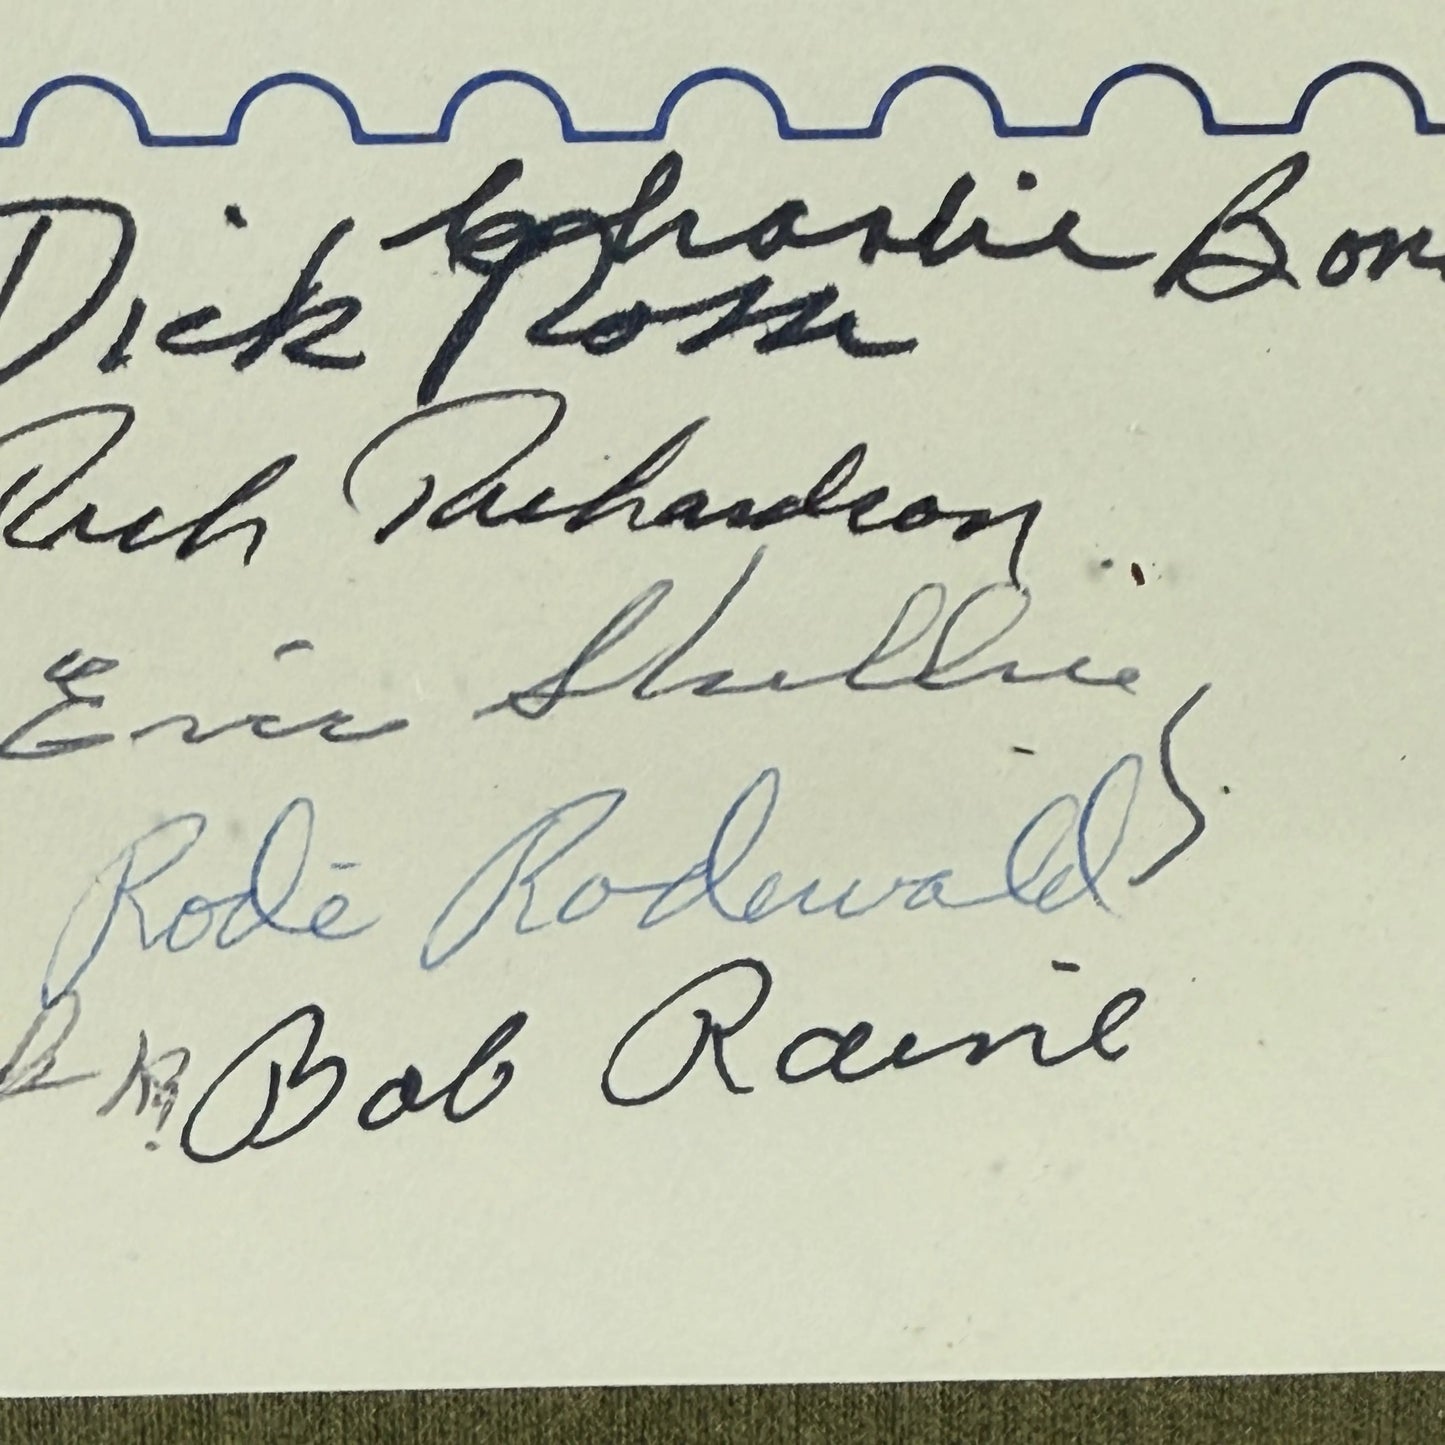 Charlie
Dick Ross
Rich Richardson
Eric
Rode Rodewald
Bob Raine